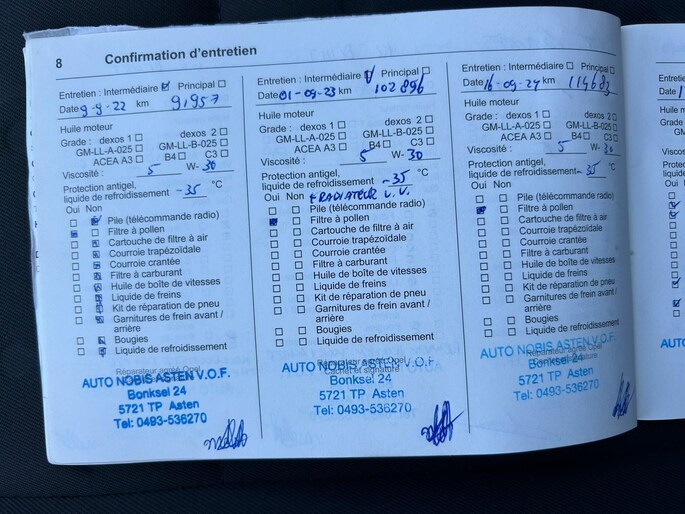 8 Confirmation d'entretien
Entretien : Intermédiaire Principal
Date 9-9-22 km 91957
Huile moteur
Grade : dexos 1 dexos 2
GM-LL-A-025 GM-LL-B-025
ACEA A3 B4 C3
Viscosité : 5 W- 30
Protection antigel,
liquide de refroidissement -35 °C
Oui Non
Pile (télécommande radio)
Filtre à pollen
Cartouche de filtre à air
Courroie trapézoïdale
Courroie crantée
Filtre à carburant
Huile de boîte de vitesses
Liquide de freins
Kit de réparation de pneu
Garnitures de frein avant /
arrière
Bougies
Liquide de refroidissement
Réparateur agréé Opel
AUTO NOBIS ASTEN V.O.F.
Bonksel 24
5721 TP Asten
Tel: 0493-536270
Entretien : Intermédiaire Principal
Date 01-09-23 km 102896
Huile moteur
Grade : dexos 1 dexos 2
GM-LL-A-025 GM-LL-B-025
ACEA A3 B4 C3
Viscosité : 5 W- 30
Protection antigel,
liquide de refroidissement -35 °C
Oui Non + RADIATEUR V.V.
Pile (télécommande radio)
Filtre à pollen
Cartouche de filtre à air
Courroie trapézoïdale
Courroie crantée
Filtre à carburant
Huile de boîte de vitesses
Liquide de freins
Kit de réparation de pneu
Garnitures de frein avant /
arrière
Bougies
Liquide de refroidissement
Réparateur agréé Opel
Cachet et signature
AUTO NOBIS ASTEN V.O.F.
Bonksel 24
5721 TP Asten
Tel: 0493-536270
Entretien : Intermédiaire Principal
Date 16-09-24 km 114683
Huile moteur
Grade : dexos 1 dexos 2
GM-LL-A-025 GM-LL-B-025
ACEA A3 B4 C3
Viscosité : 5 W- 30
Protection antigel,
liquide de refroidissement -35 °C
Oui Non
Pile (télécommande radio)
Filtre à pollen
Cartouche de filtre à air
Courroie trapézoïdale
Courroie crantée
Filtre à carburant
Huile de boîte de vitesses
Liquide de freins
Kit de réparation de pneu
Garnitures de frein avant /
arrière
Bougies
Liquide de refroidissement
Réparateur agréé Opel
Cachet et signature
AUTO NOBIS ASTEN V.O.F.
Bonksel 24
5721 TP Asten
Tel: 0493-536270